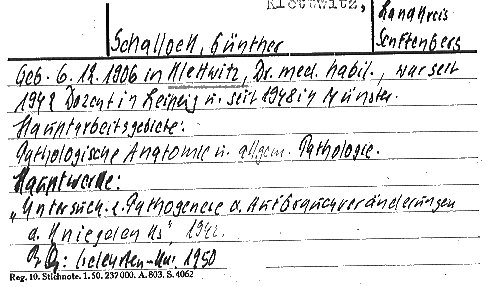 Klettwitz,
Landkreis
Senftenberg
Schallock, Günther
Geb. 6.12.1906 in Klettwitz, Dr. med. habil., war seit
1942 Dozent in Leipzig u. seit 1948 in Münster.
Hauptarbeitsgebiete:
Pathologische Anatomie u. allgem. Pathologie.
Hauptwerke:
„Untersuch. z. Pathogenese d. Aufbrauchveränderungen
d. Kniegelenks", 1942.
Gelehrten-Kal. 1950
Reg. 10. Stichnote. 1. 50. 237000. A. 803. S. 4062